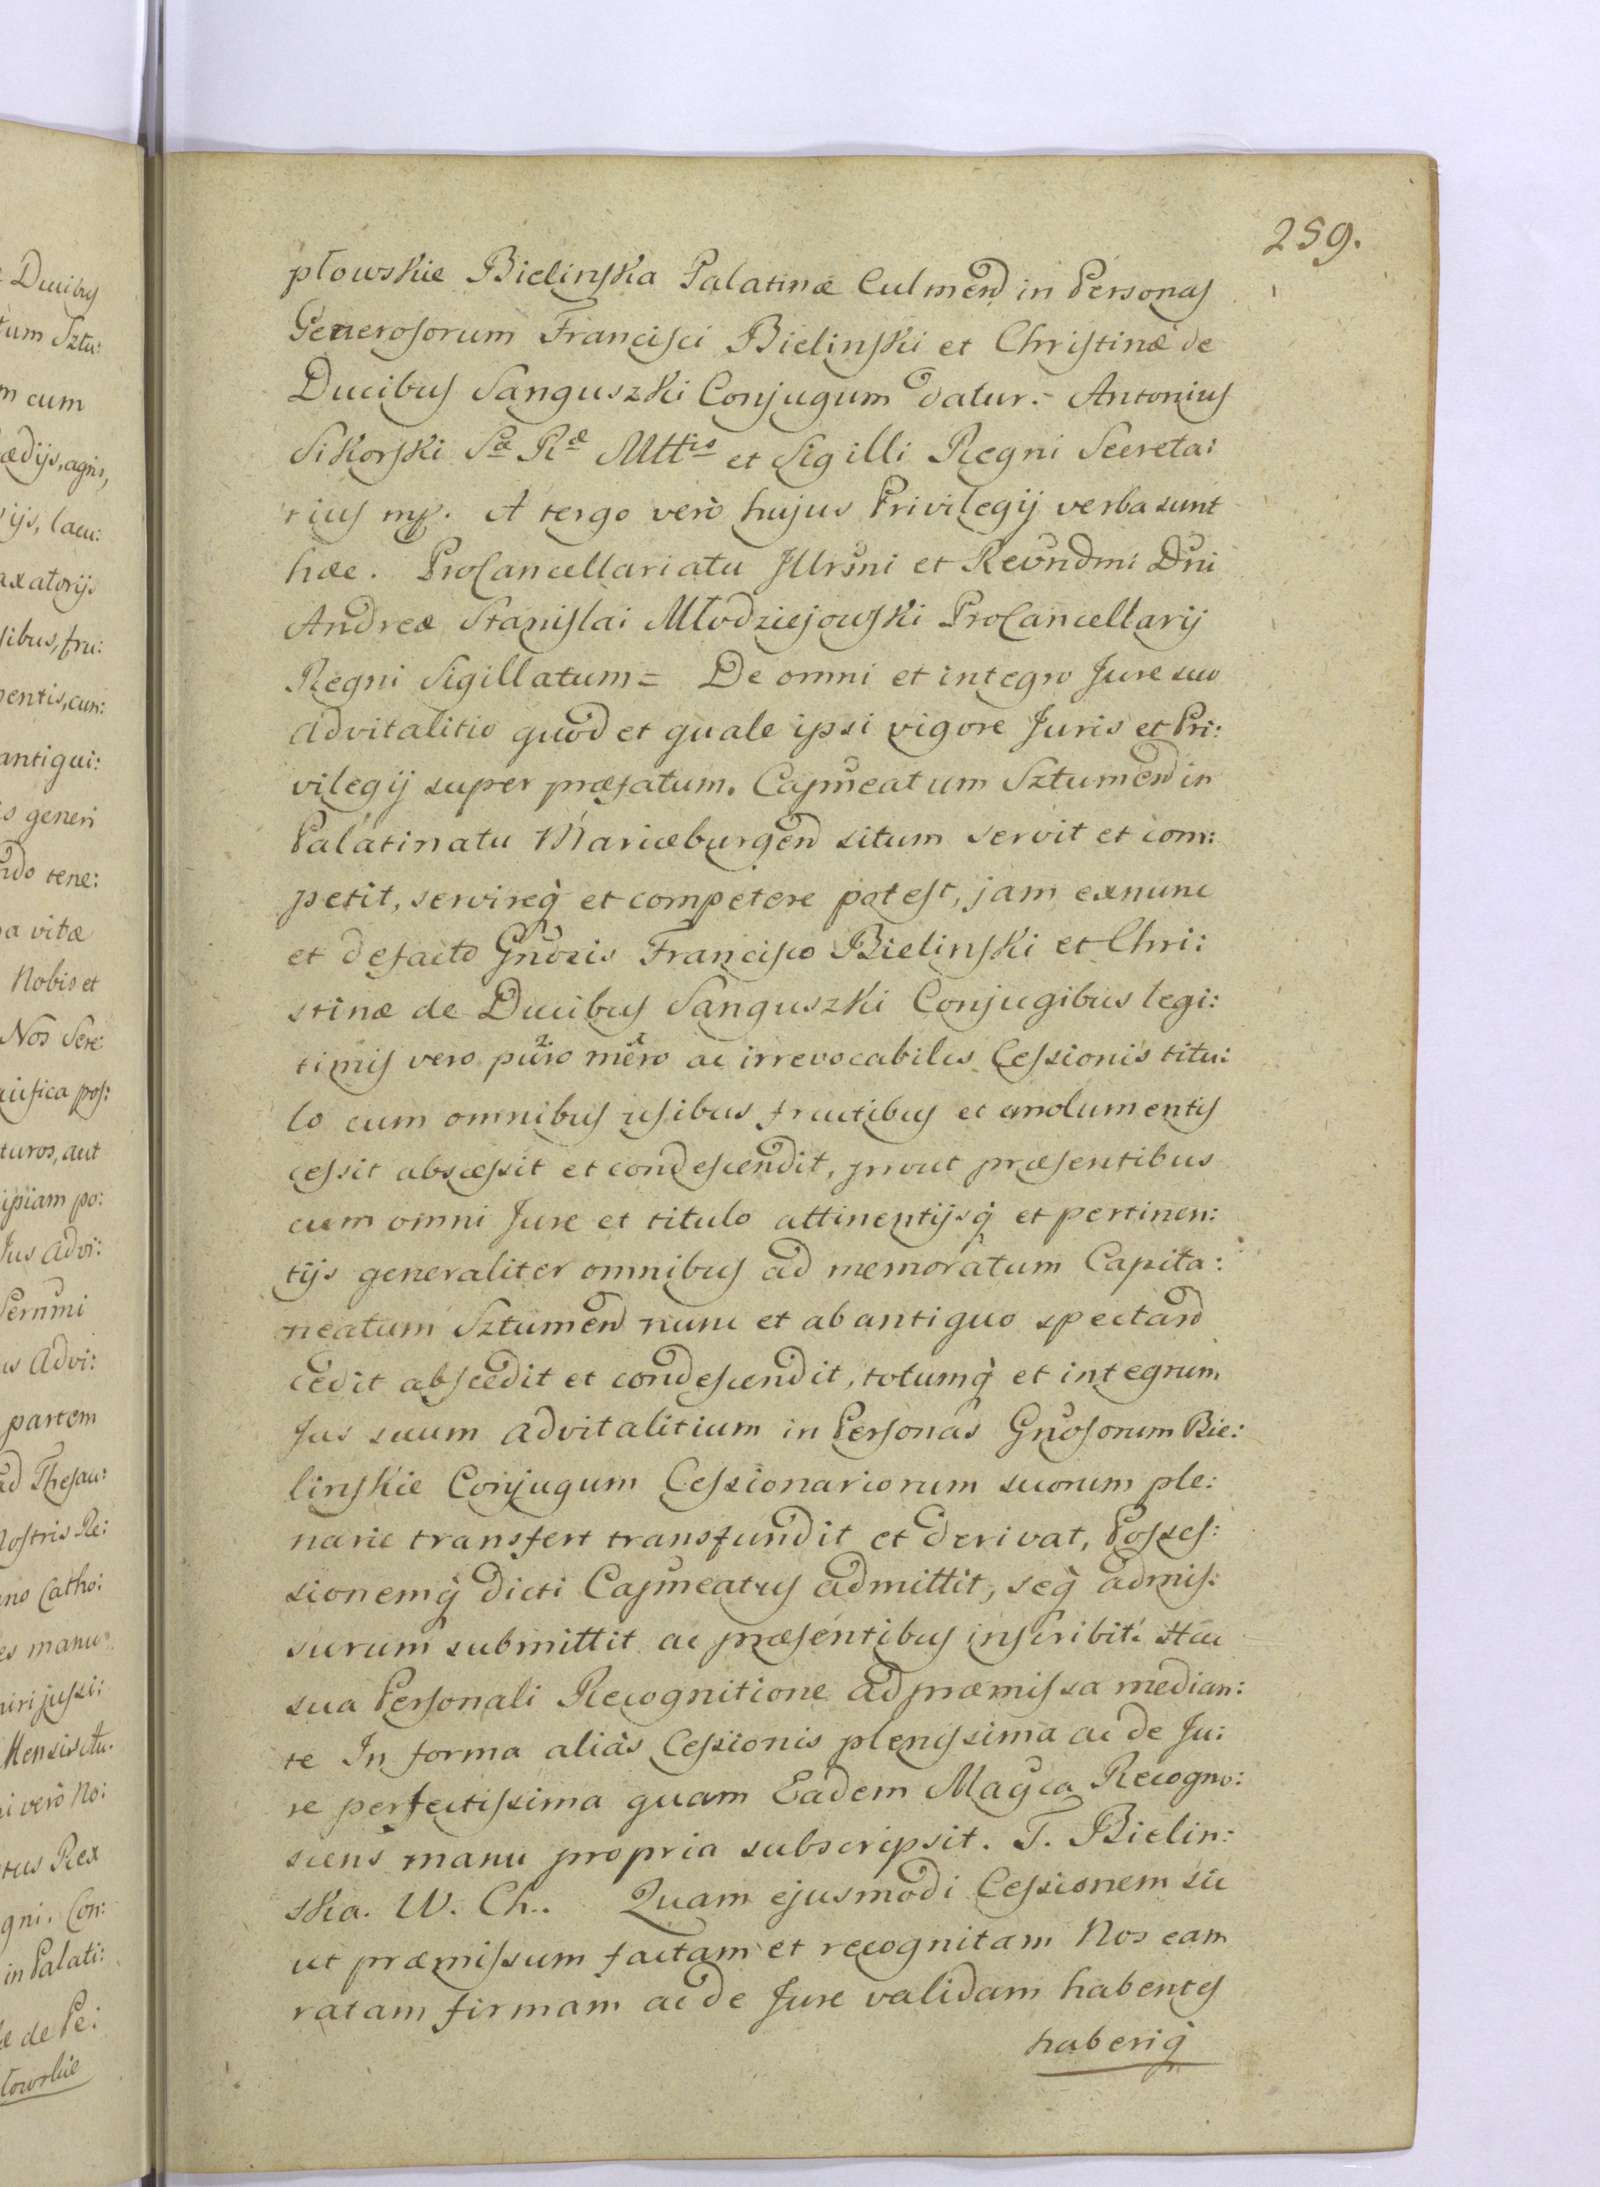 259.
płowskie Bielinska Palatinæ Culmen in Personas
Generosorum Francisci Bielinski et Christinæ de
Ducibus Sanguszki Conjugum datur. Antonius
Sikorski Sæ Ræ Mttis et Sigilli Regni Secreta:
rius mp. A tergo verò hujus Privilegij verba sunt
hæc. ProCancellariatu Illrsmi et Revndmi Dni
Andreæ Stanislai Młodziejowski ProCancellarij
Regni Sigillatum = De omni et integro Jure suo
advitalitio quod et quale ipsi vigore Juris et Pri:
vilegij super præfatum. Capneatum Sztumen in
Palatinatu Mariæburgen situm servit et com:
petit, servireq et competere potest, jam exnunc
et defacto Gnosis Francisco Bielinski et Chri:
stinæ de Ducibus Sanguszki Conjugibus legi:
timis vero puro mero ac irrevocabilis Cessionis titu:
lo cum omnibus usibus fructibus et emolumentis
cessit abscessit et condescendit, prout præsentibus
cum omni Jure et titulo attinentijsq et pertinen:
tijs generaliter omnibus ad memoratum Capita:
neatum Sztumen nunc et ab antiquo spectan
cedit abscedit et condescendit, totumq et integrum
Jus suum advitalitium in Personas Gnosorum Bie:
linskie Conjugum Cessionariorum suorum ple:
narie transfert transfundit et derivat, Posses:
sionemq dicti Capneatus admittit, seq admis:
surum submittit ac præsentibus inscribit. Hac
sua Personali Recognitione ad præmissa median:
te In forma aliàs Cessionis plenissima ac de Ju:
re perfectissima quam Eadem Magca Recogno:
scens manu propria subscripsit. T. Bielin:
ska. W. Ch.. Quam ejusmodi Cessionem sic
ut præmissum factam et recognitam Nos eam
ratam firmam ac de Jure validam habentes
haberiq
Ducibus
tum Sztu:
m cum
ædijs, agris,
ijs, lacu:
axatorijs
sibus, fru:
mentis, cun:
antiqui:
is generi
ndo tene:
a vitæ
Nobis et
Nos Sere
aufica pos:
turos, aut
ipsiam po:
Jus advi:
Sernmi
us advi:
partem
ad Thesau:
Nostris Re:
ano Catho:
es manu
niri jussi:
Mensis
ni verò No:
tus Rex
gni. Con:
in Palati:
æ de Pe:
towskie